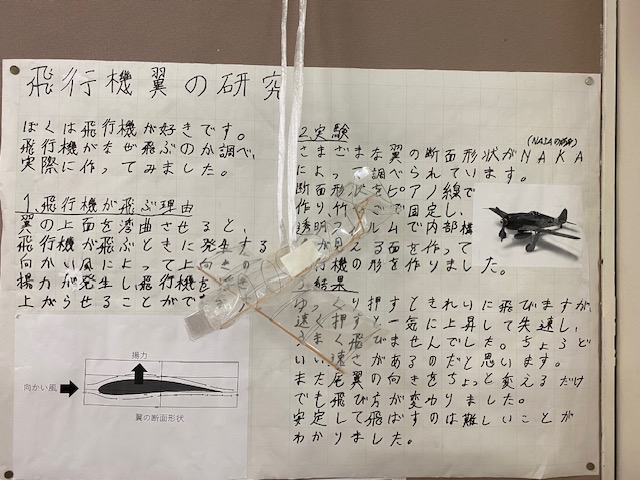 飛行機翼の研究
ぼくは飛行機が好きです。
飛行機がなぜ飛ぶのか調べ、
実際に作ってみました。
1、飛行機が飛ぶ理由
翼の上面を湾曲させると、
飛行機が飛ぶときに発生する
向かい風によって上向き
揚力が発生し飛行機を
上がらせることがで
揚力
向かい風
翼の断面形状
2、実験
(NASAの前身)
さまざまな翼の断面形状がNAKA
によって調べられています。
断面形状をピアノ線で
作り、竹ひごで固定し、
透明フィルムで内部構
が見える面を作って
行機の形を作りました。
結果
ゆっくり押すときれいに飛びますが、
速く押すと一気に上昇して失速し、
うまく飛びませんでした。ちょうど
いい速さがあるのだと思います。
また尾翼の向きをちょっと変えるだけ
でも飛び方が変わりました。
安定して飛ばすのは難しいことが
わかりました。